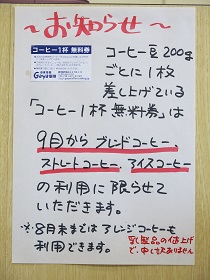 ～お知らせ～
コーヒー1杯 無料券
コーヒー豆200g
ごとに1枚
差し上げている
「コーヒー1杯 無料券」は
9月から ブレンドコーヒー、
ストレートコーヒー、アイスコーヒー
の利用に限らせて
いただきます。
※8月末まではアレンジコーヒーも
利用できます。
乳製品の値上げ
で、申し訳ありません